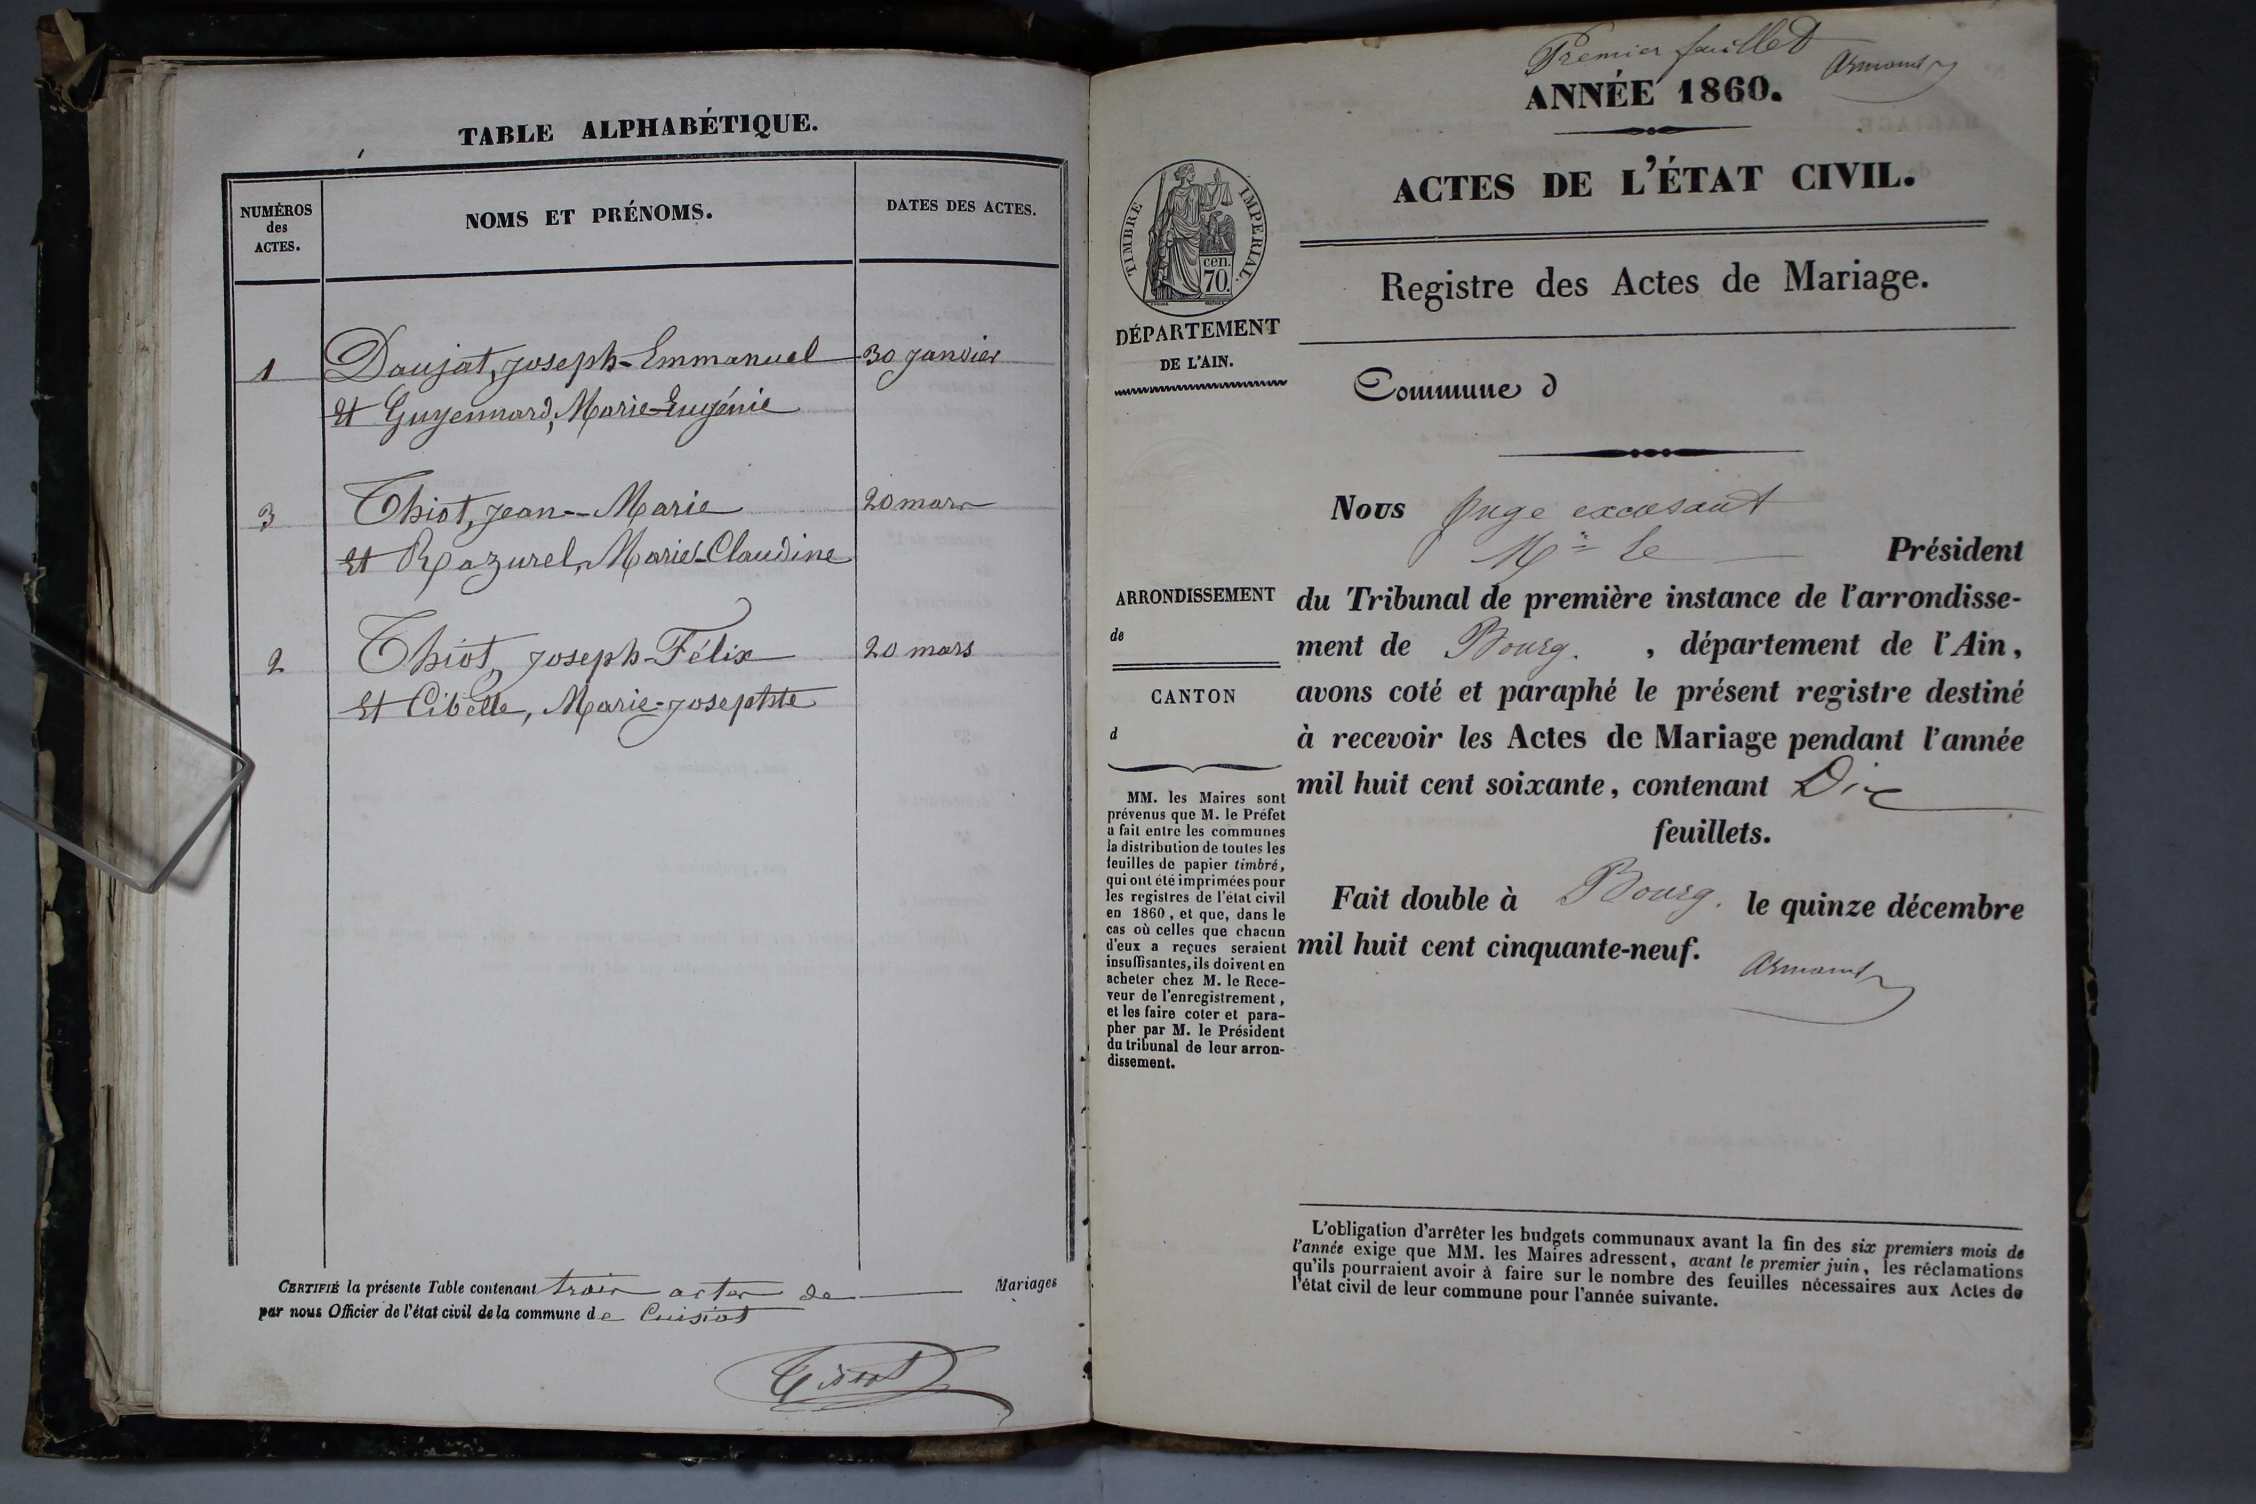 TABLE ALPHABÉTIQUE.
NUMÉROS
des
ACTES.
NOMS ET PRÉNOMS.
DATES DES ACTES.
1 Daujat, Joseph-Emmanuel 30 Janvier
et Guyennard, Marie-Eugénie
3 Thiot, Jean-Marie 20 mars
et Razurel, Marie-Claudine
2 Thiot, Joseph-Félix 20 mars
et Cibelle, Marie-Josephte
CERTIFIÉ la présente Table contenant trois actes de Mariages
par nous Officier de l'état civil de la commune de Cuisiat
Premier feuillet
ANNÉE 1860.
ACTES DE L'ÉTAT CIVIL.
TIMBRE IMPERIAL.
cen.
70.
Registre des Actes de Mariage.
DÉPARTEMENT
DE L'AIN.
Commune d
Nous Juge
Mr le Président
ARRONDISSEMENT
de
CANTON
d
du Tribunal de première instance de l'arrondisse-
ment de Bourg. , département de l'Ain,
avons coté et paraphé le présent registre destiné
à recevoir les Actes de Mariage pendant l'année
mil huit cent soixante, contenant Dix
feuillets.
Fait double à Bourg. le quinze décembre
mil huit cent cinquante-neuf.
MM. les Maires sont
prévenus que M. le Préfet
a fait entre les communes
la distribution de toutes les
feuilles de papier timbré,
qui ont été imprimées pour
les registres de l'état civil
en 1860, et que, dans le
cas où celles que chacun
d'eux a reçues seraient
insuffisantes, ils doivent en
acheter chez M. le Rece-
veur de l'enregistrement,
et les faire coter et para-
pher par M. le Président
du tribunal de leur arron-
dissement.
L'obligation d'arrêter les budgets communaux avant la fin des six premiers mois de
l'année exige que MM. les Maires adressent, avant le premier juin, les réclamations
qu'ils pourraient avoir à faire sur le nombre des feuilles nécessaires aux Actes de
l'état civil de leur commune pour l'année suivante.